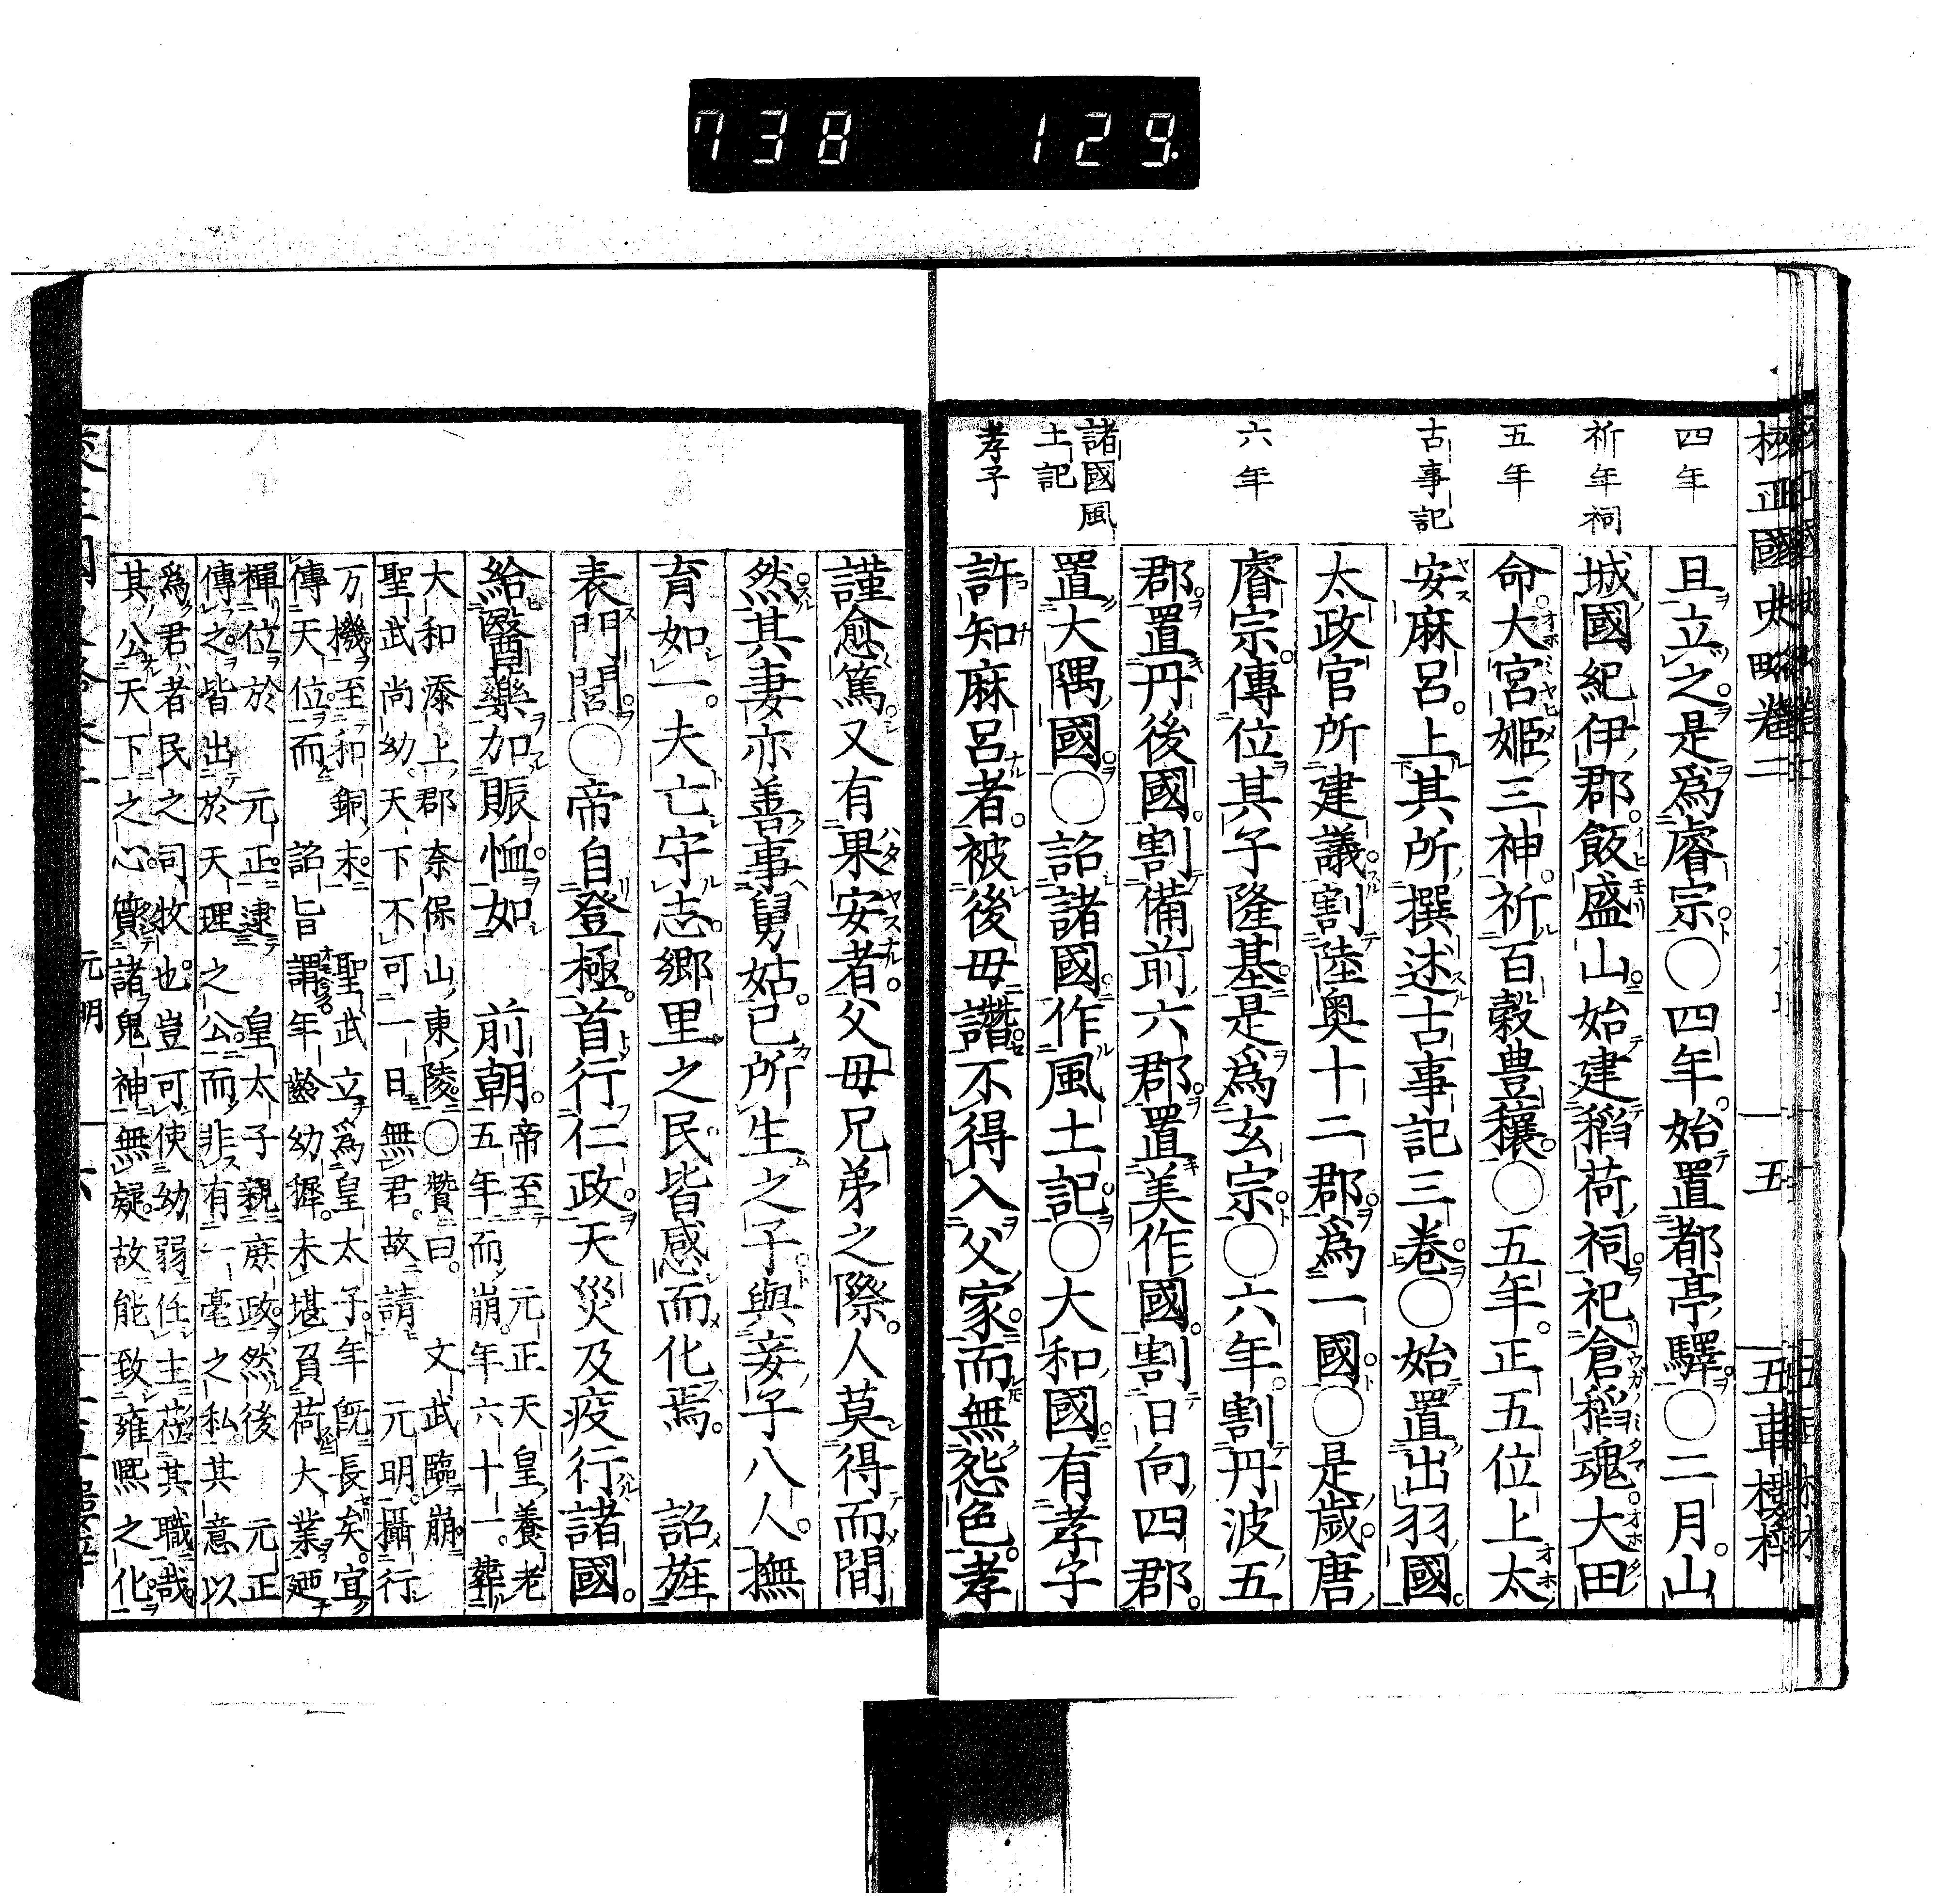 738 129.
校正國史略卷二
一五
五車樓梓
四年
祈年祠
五年
古事記
六年
諸國風
土記
孝子
且立之。是爲睿宗。○四年。始置都亭驛。○二月。山
城國紀伊郡。飯盛山。始建稻荷祠。祀倉稻魂。大田
命。大宮姬三神。祈百穀豊穰。○五年。正五位上太
安麻呂。上其所撰述古事記三卷。○始置出羽國。
太政官所建議。割陸奧十二郡。爲一國。○是歲。唐
睿宗。傳位其子隆基。是爲玄宗。○六年。割丹波五
郡。置丹後國。割備前六郡。置美作國。割日向四郡。
置大隅國。○詔諸國。作風土記。○大和國。有孝子
許知麻呂者。被後母讒。不得入父家。而無怨色。孝
謹愈篤。又有果安者。父母兄弟之際。人莫得而間
然。其妻亦善事舅姑。已所生之子。與妾子八人。撫
育如一。夫亡守志。鄉里之民。皆感而化焉。 詔旌
表門閭。○帝自登極。首行仁政。天災及疫行諸國。
給醫藥加賑恤。如 前朝。
帝至 元正天皇養老
五年而崩。年六十一。葬
大和添上郡奈保山東陵。○贊曰。 文武臨崩
聖武尚幼。天下不可一日無君。故請 元明。攝行
万機。至和銅末。 聖武立爲皇太子。年既長矣。宜
傳天位。而 詔旨謂年齡幼穉。未堪負荷大業。廼
禪位於 元正。逮 皇太子親庶政。然後 元正
傳之。皆出於天理之公。而非有一毫之私。其意以
爲君者民之司牧也。豈可使幼弱任主。莅其職哉。
其公天下之心。質諸鬼神無疑。故能致雍熙之化。
元明